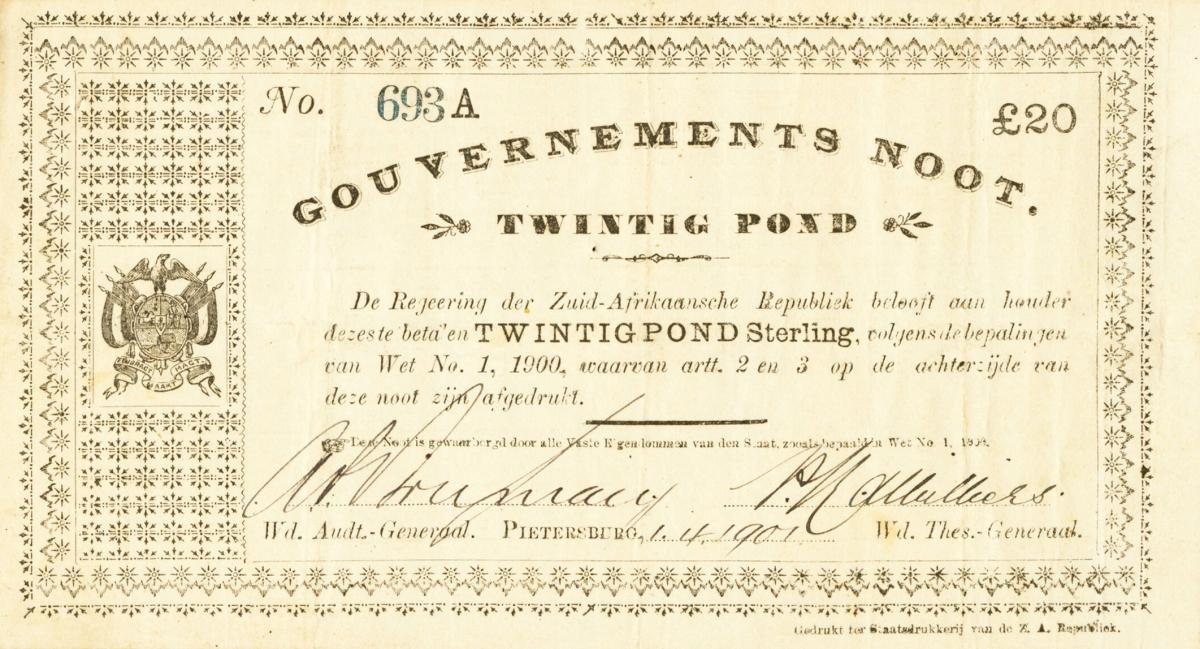 No. 693 A
£20
GOUVERNEMENTS NOOT.
TWINTIG POND
De Regeering der Zuid-Afrikaansche Republiek belooft aan houder
dezes te beta'en TWINTIG POND Sterling, volgens de bepalingen
van Wet No. 1, 1900, waarvan artt. 2 en 3 op de achterzijde van
deze noot zijn afgedrukt.
Deze Noot is gewaarborgd door alle Vaste Eigendommen van den Staat, zooals bepaald in Wet No. 1, 1900.
Wd. Audt.-Generaal. PIETERSBURG, 1.4.1901 Wd. Thes.-Generaal.
EENDRAGT MAAKT MAGT
Gedrukt ter Staatsdrukkerij van de Z. A. Republiek.